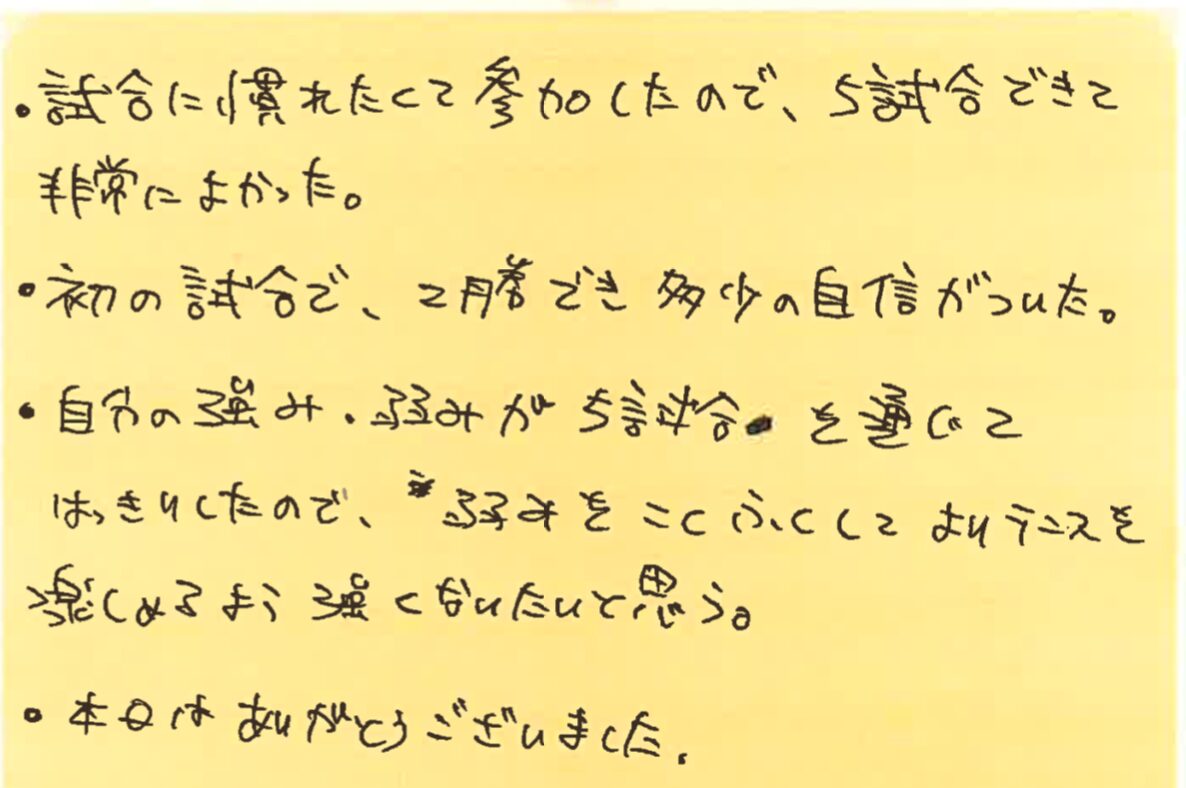 ・試合に慣れたくて参加したので、5試合できて
非常によかった。
・初の試合で、2勝でき多少の自信がついた。
・自分の強み・弱みが5試合を通じて
はっきりしたので、弱みをこくふくしてよりテニスを
楽しめるよう強くなりたいと思う。
・本日はありがとうございました。